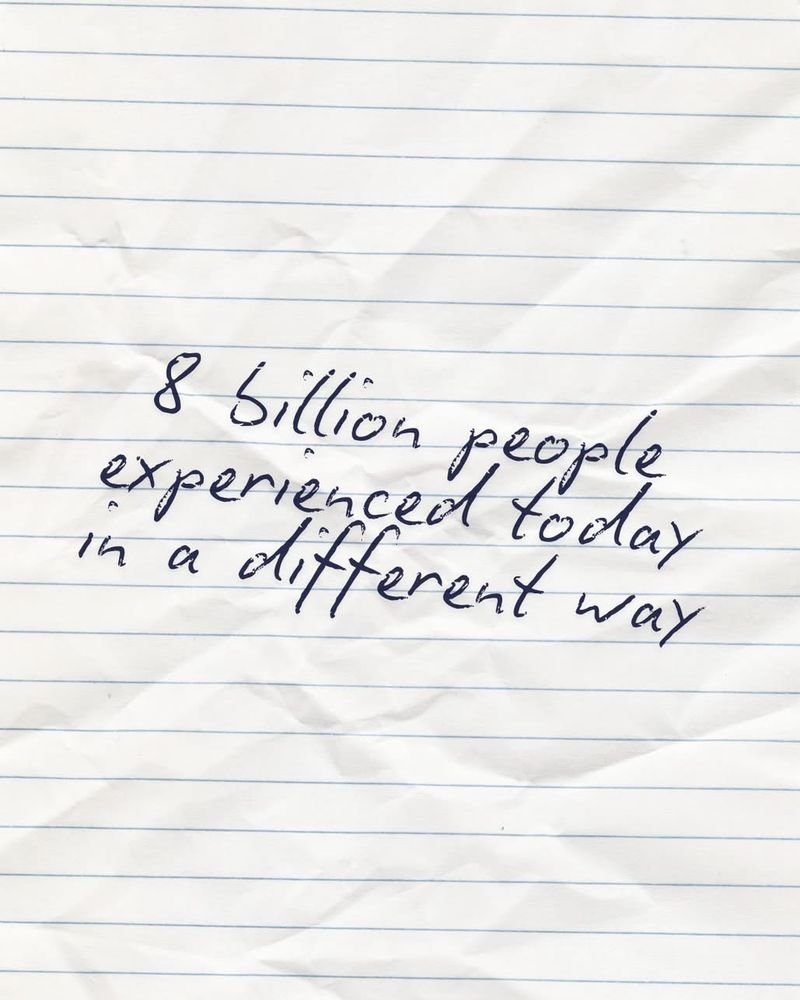 8 billion people
experienced today
in a different way